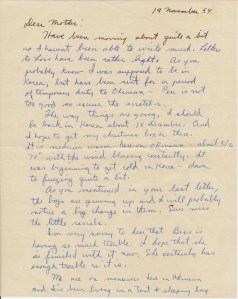 19 November 54.
Dear Mother:
Have been moving about quite a bit
so I havent been able to write much. Letters
to have been rather light. As you
probably know I was supposed to be in
Korea, but have been sent for a period
of temporary duty to Okinawa - Pen is not
too good so excuse the scratches.
The way things are going, I should
be back in Korea about 10 December. And
I hope to get my christmas boxes there.
It is medium warm here on Okinawa - about 60's
70's with the wind blowing constantly. It
was beginning to get cold in Korea - down
to freezing quite a bit.
As you mentioned in your last letter,
the boys are growing up and I will probably
notice a big change in them. Sure miss
the little rascals.
Am very sorry to hear that is
having so much trouble. I hope that she
is finished with it now. She certainly has
enough trouble as it is.
We are on maneuvers here in Okinawa
and I've been living in a tent & sleeping bag